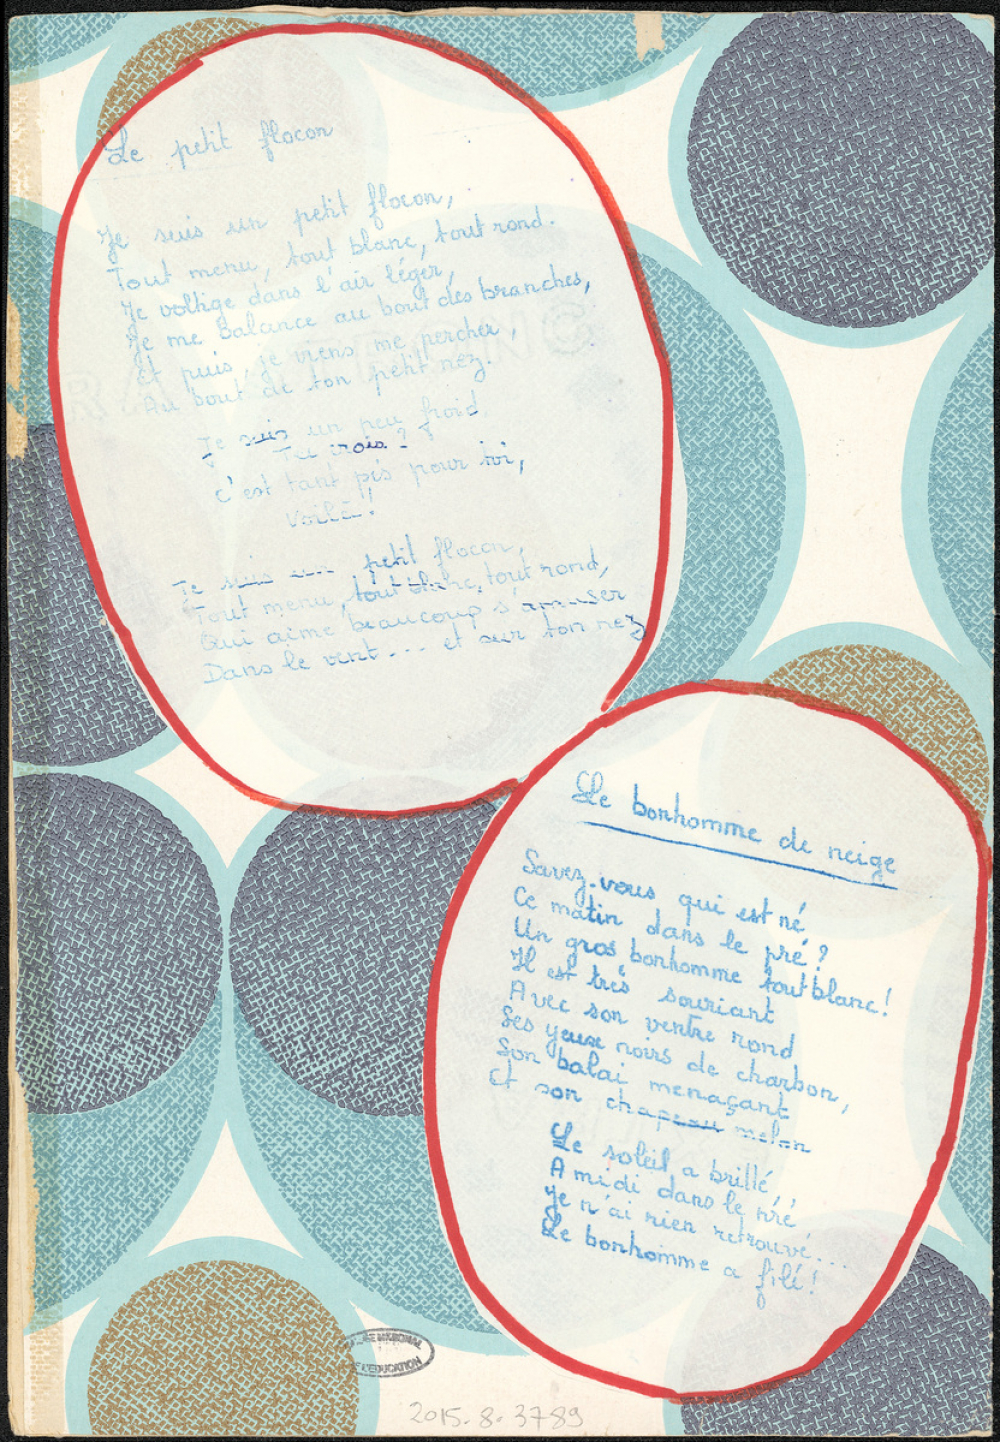 Le petit flocon
Je suis un petit flocon,
Tout menu, tout blanc, tout rond.
Je voltige dans l'air léger,
Je me balance au bout des branches,
Et puis, je viens me percher,
Au bout de ton petit nez.
Je suis un peu froid
Tu crois?
C'est tant pis pour toi,
Voilà!
Je suis un petit flocon,
Tout menu, tout blanc, tout rond,
Qui aime beaucoup s'amuser
Dans le vent... et sur ton nez
Le bonhomme de neige
Savez-vous qui est né
Ce matin dans le pré?
Un gros bonhomme tout blanc!
Il est très souriant
Avec son ventre rond
Ses yeux noirs de charbon,
Son balai menaçant
Et son chapeau melon
Le soleil a brillé,
A midi dans le pré
Je n'ai rien retrouvé...
Le bonhomme a filé!
MUSÉE NATIONAL
DE L'ÉDUCATION
2015.8.3789